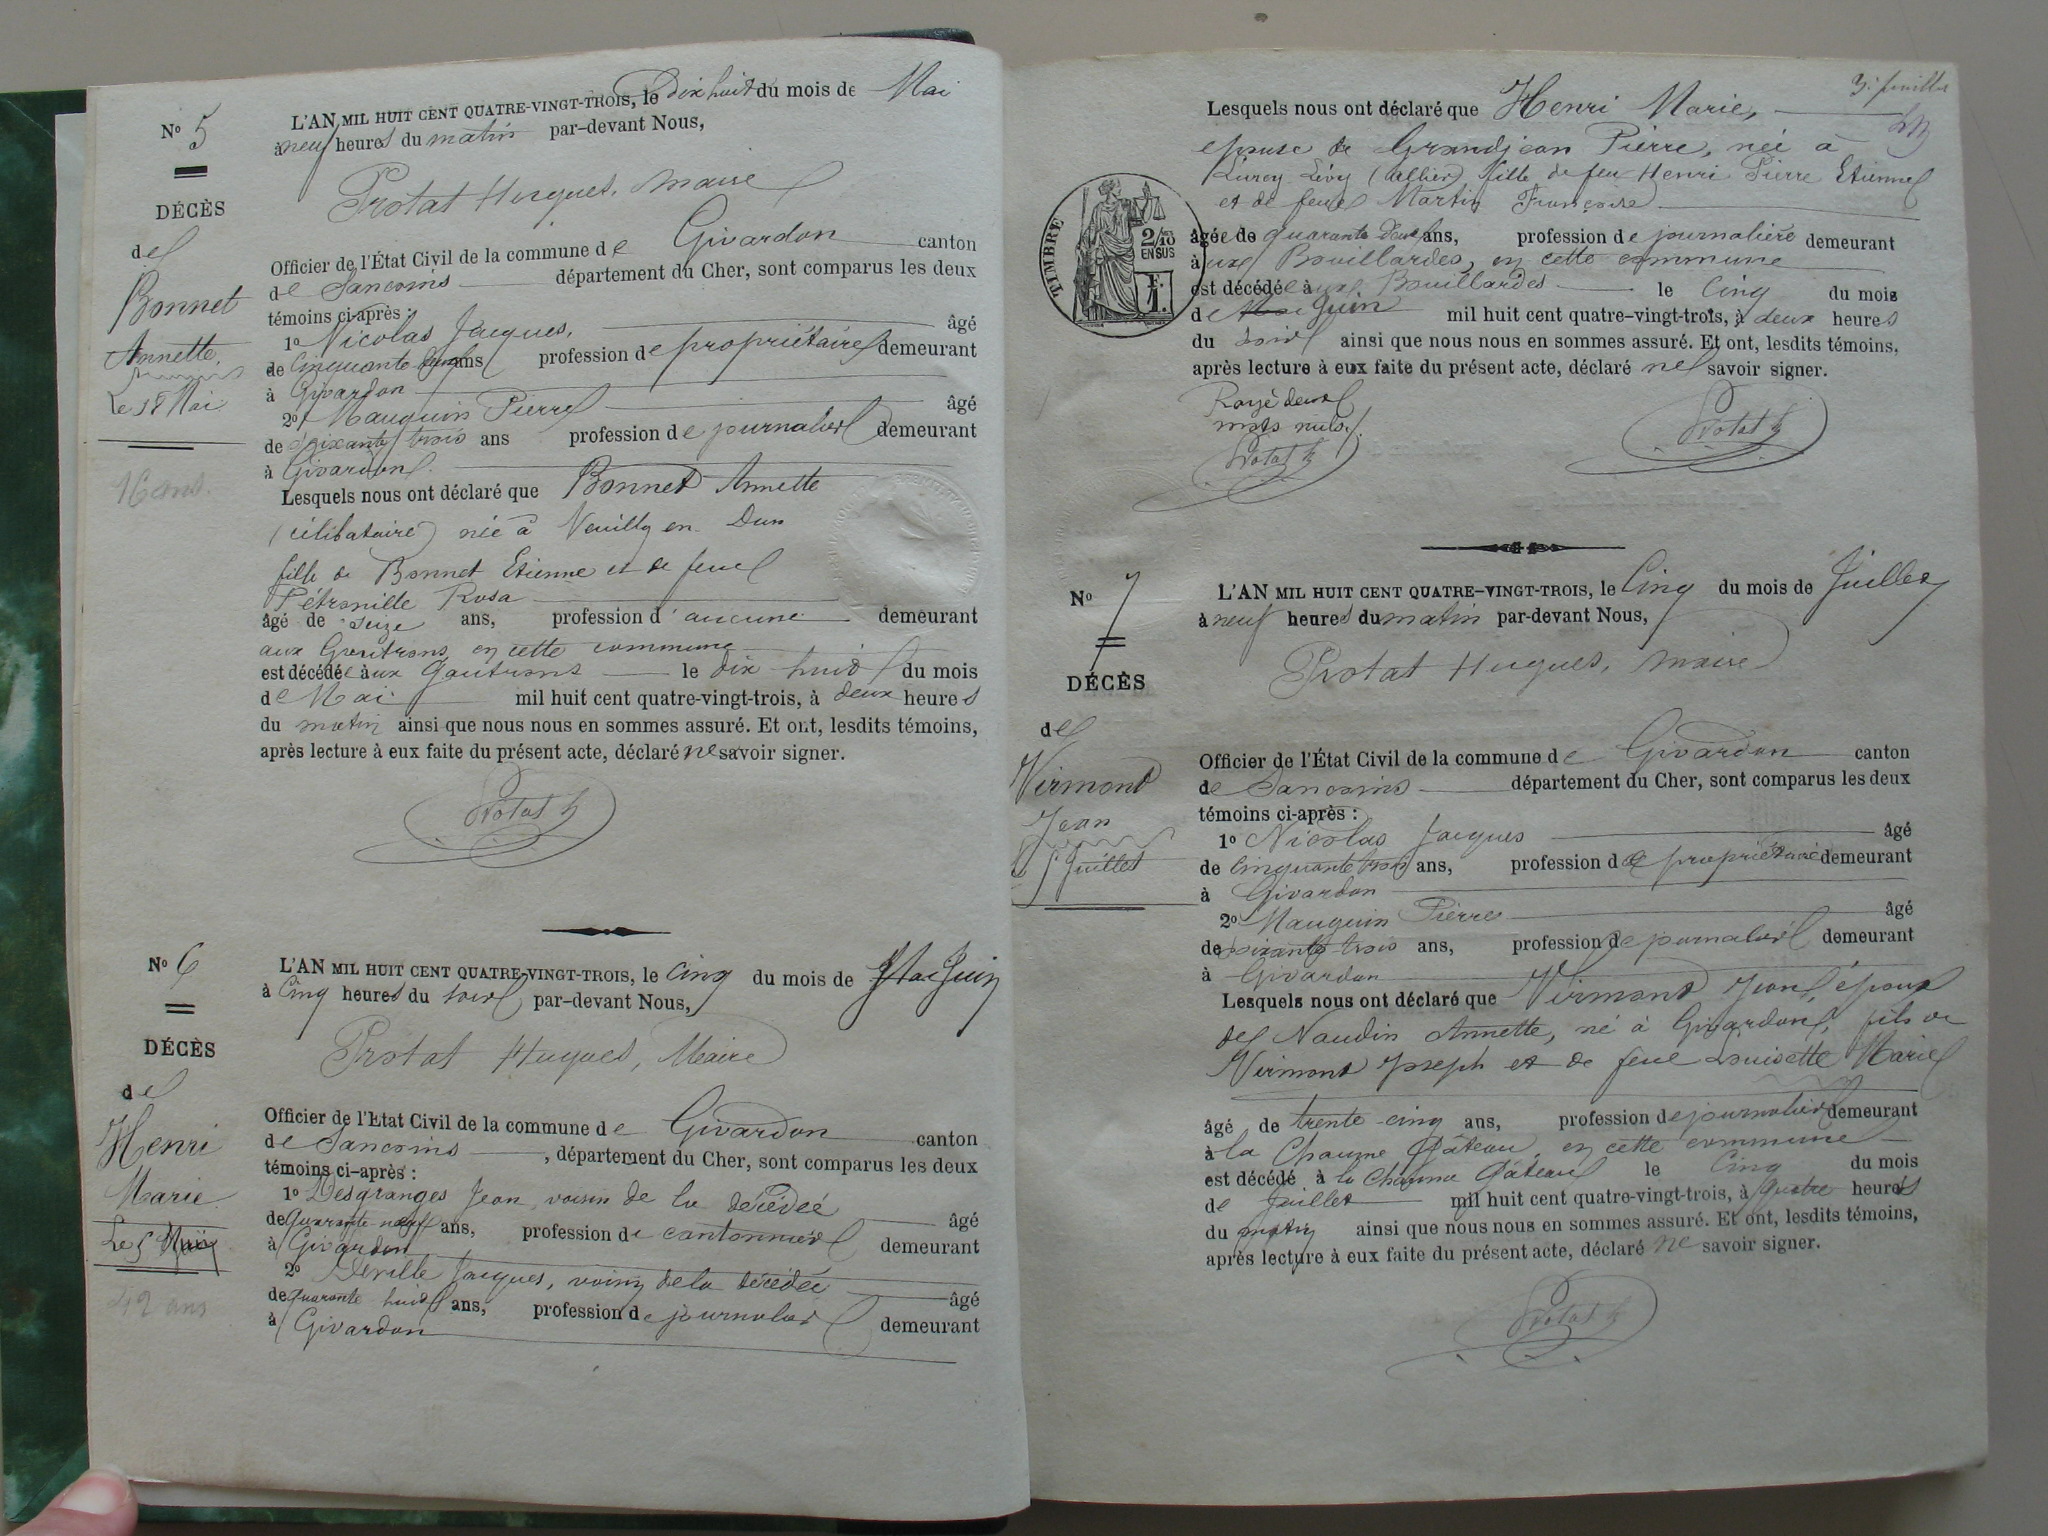 No 5
DÉCÈS
de
Bonnet
Annette
Le 18 Mai
16 ans.
L'AN MIL HUIT CENT QUATRE-VINGT-TROIS, le dix huit du mois de Mai
à neuf heures du matin par-devant Nous,
Protat Hugues, maire
Officier de l'État Civil de la commune de Givardon canton
de Sancoins département du Cher, sont comparus les deux
témoins ci-après :
1o Nicolas Jacques, âgé
de cinquante ans profession de propriétaire demeurant
à Givardon
2o Mauguin Pierre âgé
de soixante trois ans profession de journalier demeurant
à Givardon
Lesquels nous ont déclaré que Bonnet Annette
(célibataire) née à Neuilly en Dun
fille de Bonnet Etienne et de feue
Pétronille Rosa
âgé de seize ans, profession d'aucune demeurant
aux Gautrons en cette commune
est décédée aux Gautrons le dix huit du mois
de Mai mil huit cent quatre-vingt-trois, à deux heures
du matin ainsi que nous nous en sommes assuré. Et ont, lesdits témoins,
après lecture à eux faite du présent acte, déclaré ne savoir signer.
Protat h
No 6
DÉCÈS
de
Henri
Marie
Le 5
42 ans
L'AN MIL HUIT CENT QUATRE-VINGT-TROIS, le cinq du mois de Mai Juin
à Cinq heures du soir par-devant Nous,
Protat Hugues, Maire
Officier de l'Etat Civil de la commune de Givardon canton
de Sancoins, département du Cher, sont comparus les deux
témoins ci-après :
1o Desgranges Jean voisin de la décédée âgé
de quarante-neuf ans, profession de cantonnier demeurant
à Givardon
2o Déville Jacques, voisin de la décédée âgé
de quarante huit ans, profession de journalier demeurant
à Givardon
3e feuille
Lesquels nous ont déclaré que Henri Marie,
épouse de Grandjean Pierre, née à
Lurcy Lévy (Allier) fille de feu Henri Pierre Etienne
et de feue Martin Françoise
TIMBRE
2/10
EN SUS
F.
1.
âgée de quarante deux ans, profession de journalière demeurant
à aux Bouillardes, en cette commune
est décédée aux Bouillardes le cinq du mois
de Mai Juin mil huit cent quatre-vingt-trois, à deux heures
du soir ainsi que nous nous en sommes assuré. Et ont, lesdits témoins,
après lecture à eux faite du présent acte, déclaré ne savoir signer.
Rayé deux
mots nuls.
Protat h
Protat h
No 7
DÉCÈS
de
Virmont
Jean
5 Juillet
L'AN MIL HUIT CENT QUATRE-VINGT-TROIS, le Cinq du mois de Juillet
à neuf heures du matin par-devant Nous,
Protat Hugues, maire
Officier de l'État Civil de la commune de Givardon canton
de Sancoins département du Cher, sont comparus les deux
témoins ci-après :
1o Nicolas Jacques âgé
de cinquante trois ans, profession de propriétaire demeurant
à Givardon
2o Mauguin Pierre âgé
de soixante trois ans, profession de journalier demeurant
à Givardon
Lesquels nous ont déclaré que Virmont Jean, époux
de Naudin Annette, né à Givardon, fils de
Virmont Joseph et de feue Louisette Marie
âgé de trente-cinq ans, profession de journalier demeurant
à la Chaume Gâteau, en cette commune
est décédé à la Chaume Gâteau le Cinq du mois
de Juillet mil huit cent quatre-vingt-trois, à quatre heures
du matin ainsi que nous nous en sommes assuré. Et ont, lesdits témoins,
après lecture à eux faite du présent acte, déclaré ne savoir signer.
Protat h